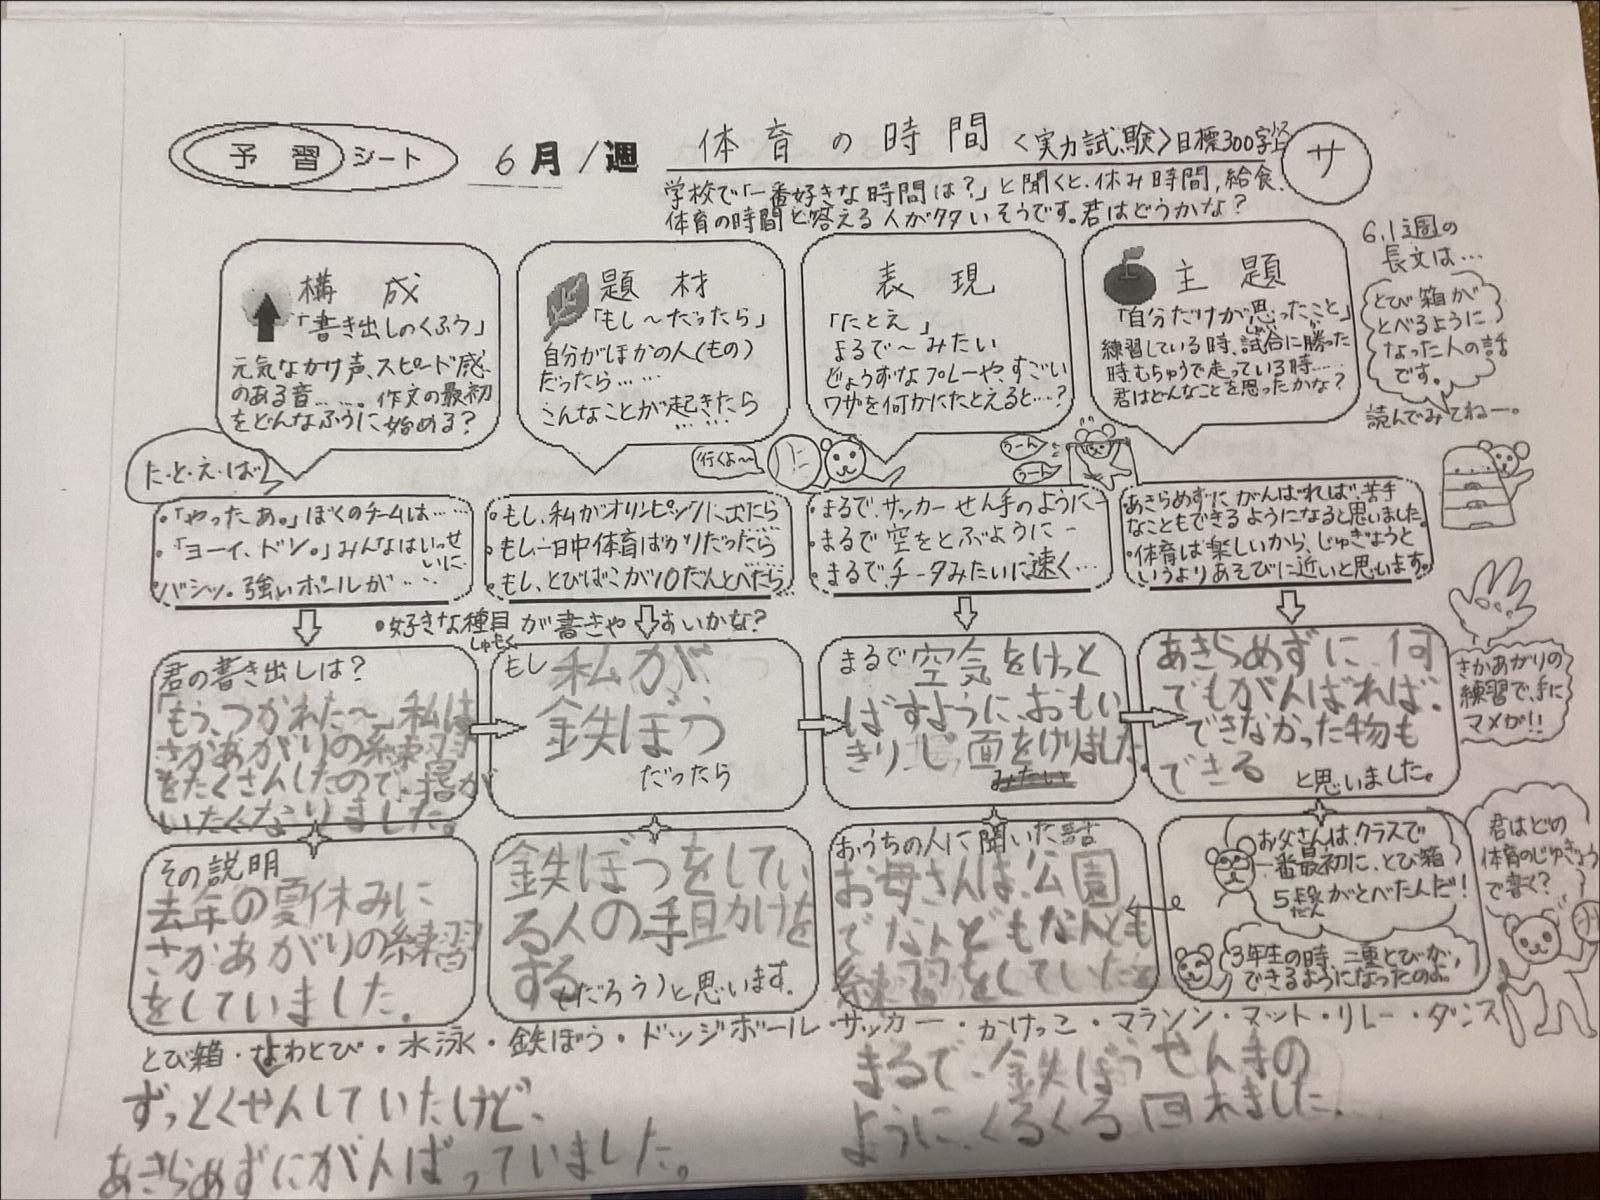 予習シート
6月1週
体育の時間〈実力試験〉目標300字
サ
学校で「一番好きな時間は？」と聞くと、休み時間、給食、
体育の時間と答える人が多いそうです。君はどうかな？
構成
「書き出しのくふう」
元気なかけ声、スピード感
のある音……。作文の最初
をどんなふうに始める？
題材
「もし～だったら」
自分がほかの人(もの)
だったら……
こんなことが起きたら
……
表現
「たとえ」
まるで～みたい
じょうずなプレーや、すごい
ワザを何かにたとえると…？
主題
「自分だけが思ったこと」
練習している時、試合に勝った
時、むちゅうで走っている時……
君はどんなことを思ったかな？
6.1週の
長文は…
とび箱が
とべるように
なった人の話
です。
読んでみてねー。
た・と・え・ば
行くよ～
うーん
うーん
・「やったあ。」ぼくのチームは……
・「ヨーイ、ドン。」みんなはいっせ
いに…
バシッ。強いボールが……
・もし、私がオリンピックに出たら
・もし一日中体育ばかりだったら
・もし、とびばこが10だんとべたら
・まるで、サッカーせん手のように
・まるで空をとぶように
・まるで、チータみたいに速く…
あきらめずにがんばれば、苦手
なこともできるようになると思いました。
・体育は楽しいから、じゅぎょうと
いうよりあそびに近いと思います。
・好きな種目が書きやすいかな？
しゅもく
君の書き出しは？
「もう、つかれた～」私は
さかあがりの練習
をたくさんしたので、指が
いたくなりました。
もし 私が
鉄ぼう
だったら
まるで 空気をけっと
ばすように、おもい
きりじ面をけりました。
みたい
あきらめずに、何
でもがんばれば、
できなかった物も
できる と思いました。
さかあがりの
練習で、手に
マメが!!
その説明
去年の夏休みに
さかあがりの練習
をしていました。
鉄ぼうをしてい
る人の手助けを
する(だろう)と思います。
おうちの人に聞いた話
お母さんは、公園
でなんどもなんども
練習をしていたと
お父さんは、クラスで
一番最初に、とび箱
5段がとべたんだ！
だん
3年生の時、二重とびが、
できるようになったのよ。
君はどの
体育のじゅぎょう
で書く？
とび箱・なわとび・水泳・鉄ぼう・ドッジボール・サッカー・かけっこ・マラソン・マット・リレー・ダンス
ずっとくせんしていたけど、
あきらめずにがんばっていました。
まるで、鉄ぼうせん手の
ように、くるくる回れました。